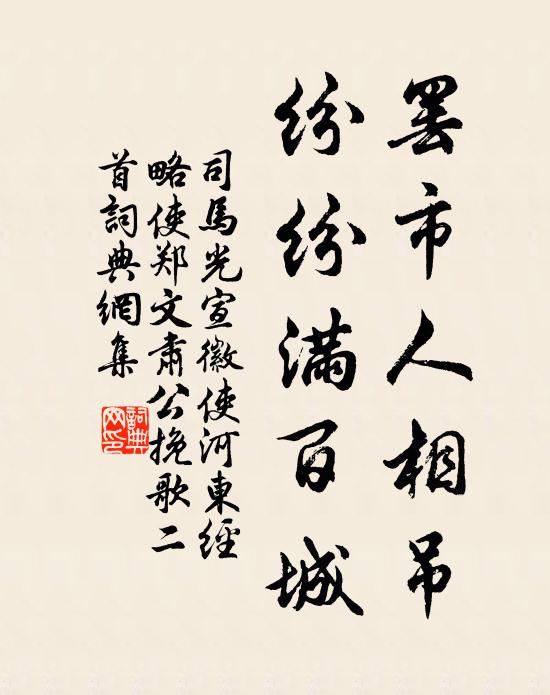 罢市人相吊
纷纷满百城
司馬光宣徽使河東經
略使郑文肅公挽歌二
首詞典網集
詞典
网印